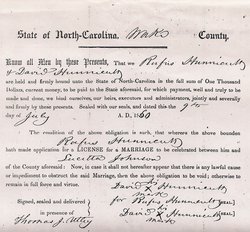 State of North-Carolina, Wake County.
Know all Men by these Presents, That we Rufus Hunnicutt
& David Hunnicutt
are held and firmly bound unto the State of North-Carolina in the full sum of One Thousand
Dollars, current money, to be paid to the State aforesaid, for which payment, well and truly to be
made and done, we bind ourselves, our heirs, executors and administrators, jointly and severally
and firmly by these presents. Sealed with our seals, and dated this 9th
day of July A. D., 1860
The condition of the above obligation is such, that whereas the above bounden
Rufus Hunnicutt
hath made application for a LICENSE for a MARRIAGE to be celebrated between him and
Lucetta Johnson
of the County aforesaid: Now, in case it shall not hereafter appear that there is any lawful cause
or impediment to obstruct the said Marriage, then the above obligation to be void; otherwise to
remain in full force and virtue.
David X Hunnicutt
mark
Signed, sealed and delivered for Rufus Hunnicutt (seal)
in presence of David X Hunnicutt (seal)
Thomas J. Utley mark